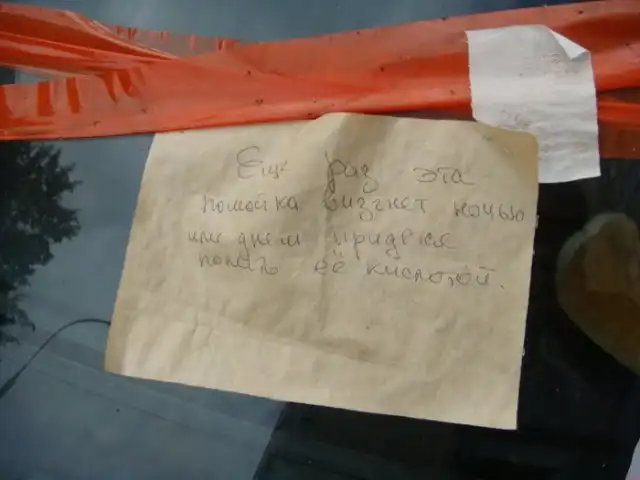 Ещё раз эта
помойка визгнет ночью
или днем придется
полить её кислотой.